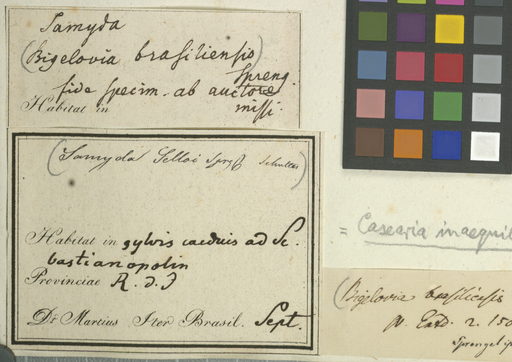 Samyda
(Bigelovia brasiliensis)
Spreng.
fide specim. ab auctore
Habitat in missi
(Samyda Selloi Spreng Schultes)
Habitat in sylvis caeduis ad Se.
bastianopolin
Provinciae R. d. J
Dr. Martius Iter Brasil. Sept.
= Casearia inaequil
(Bigelovia brasiliensis
N. Entd. 2. 150
Sprengel